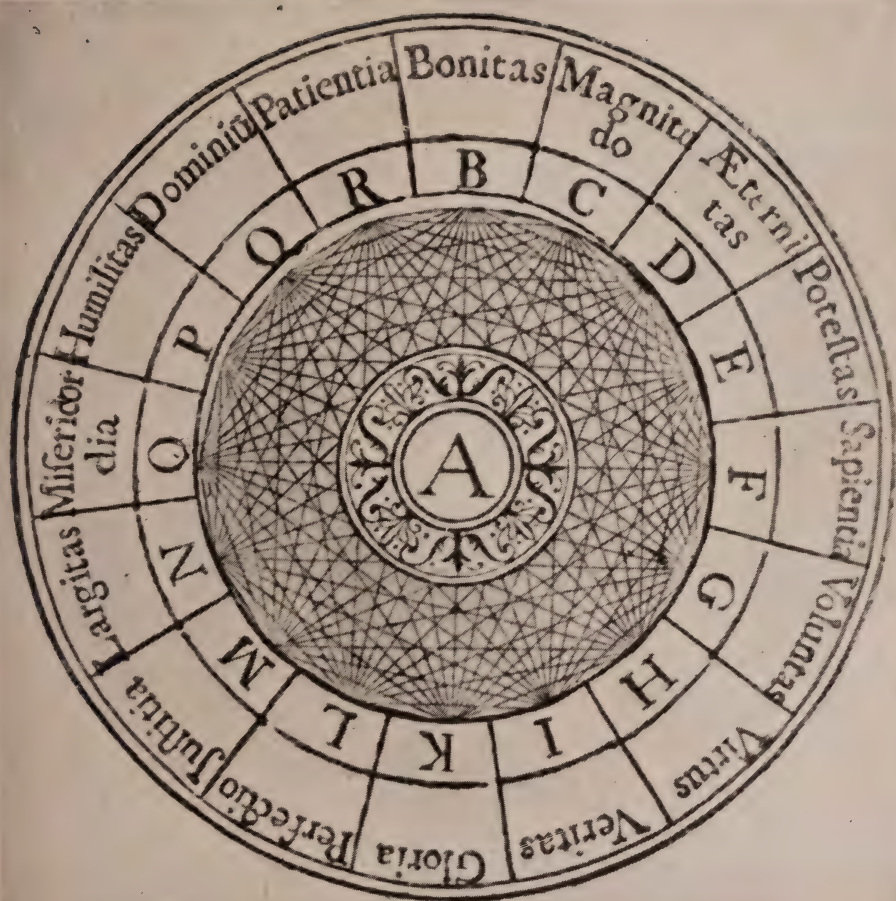 Bonitas
Magnitu
do
Æterni
tas
Poteſtas
Sapientia
Voluntas
Virtus
Veritas
Gloria
Perfectio
Juſtitia
Largitas
Miſericor
dia
Humilitas
Dominiū
Patientia
B
C
D
E
F
G
H
I
K
L
M
N
O
P
Q
R
A